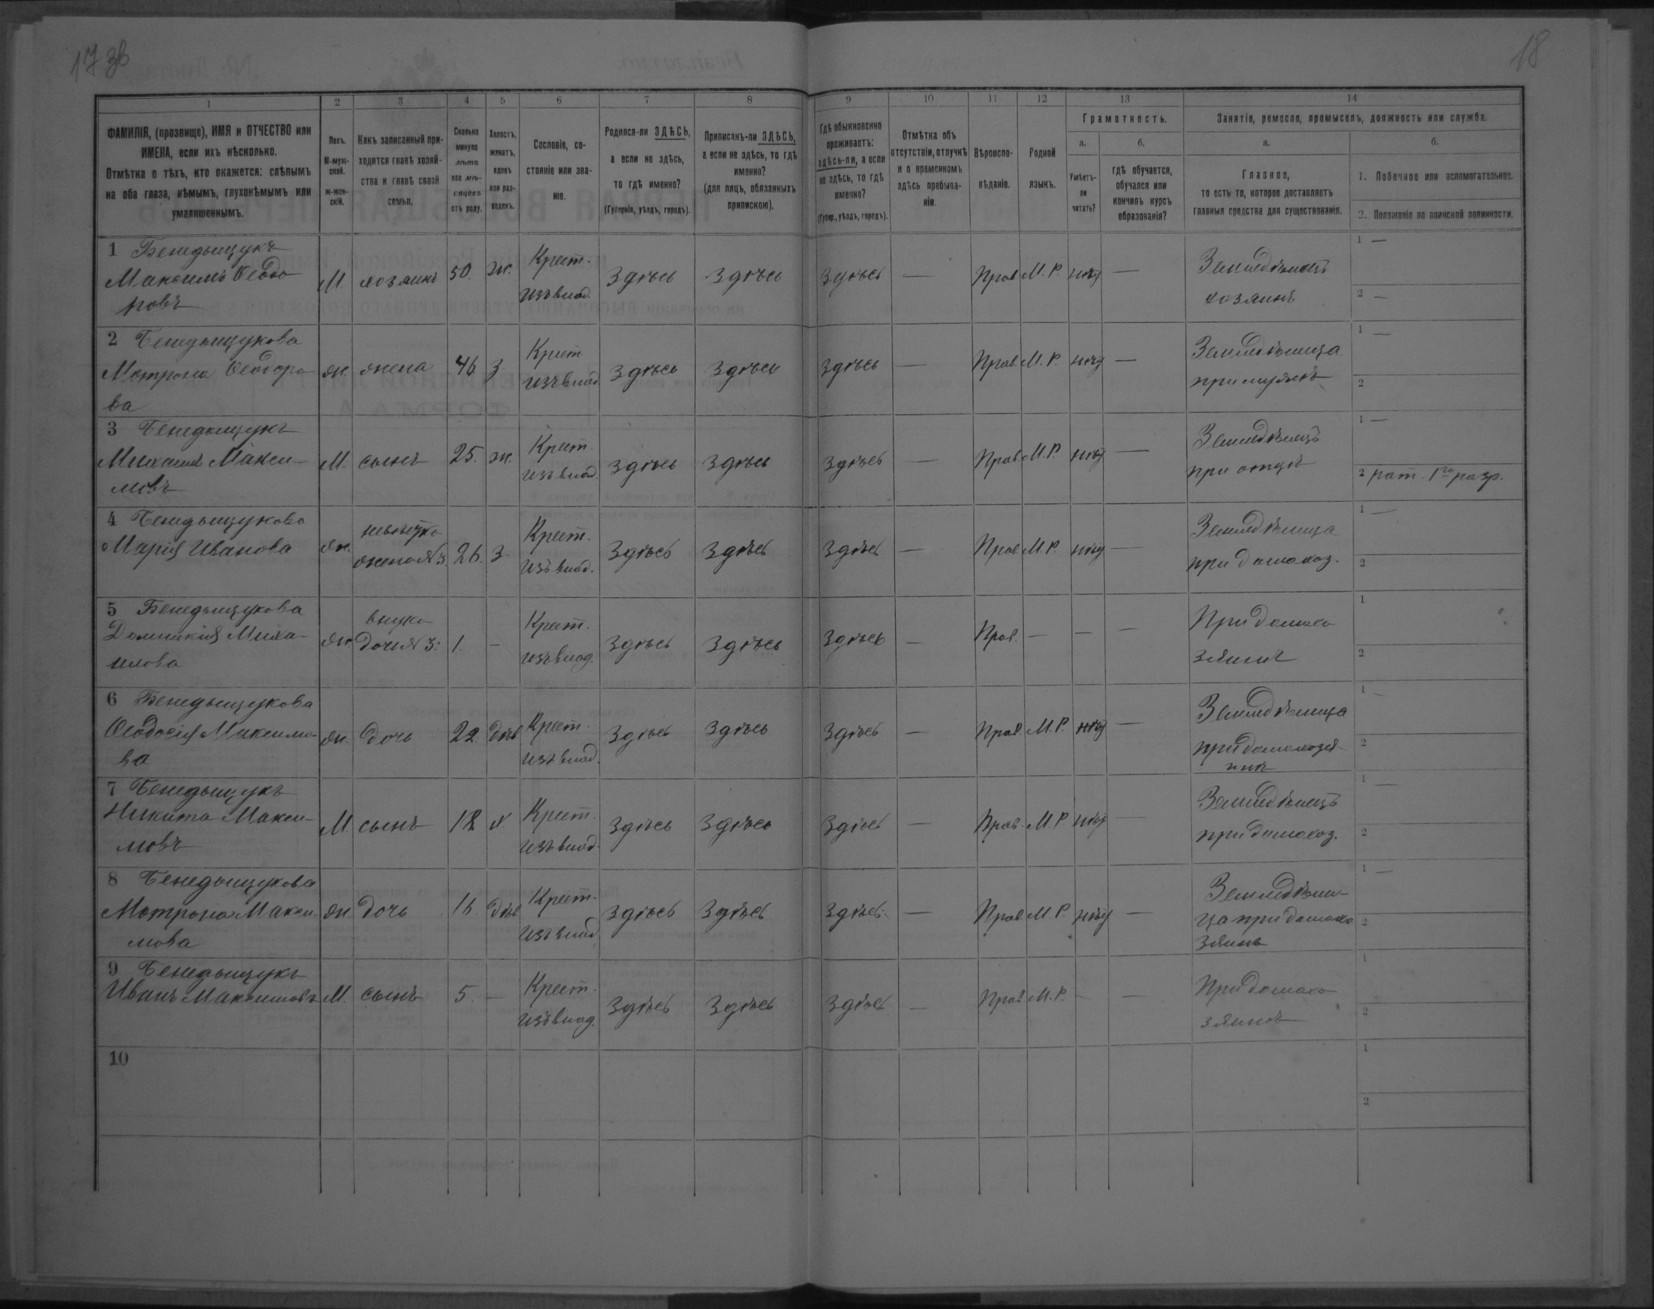 17 зв
18
1 2 3 4 5 6 7 8 9 10 11 12 13 14
ФАМИЛІЯ, (прозвище), ИМЯ и ОТЧЕСТВО или ИМЕНА, если ихъ нѣсколько.
Отмѣтка о тѣхъ, кто окажется: слѣпымъ на оба глаза, нѣмымъ, глухонѣмымъ или умалишеннымъ.
Полъ.
М-мужской.
ж-женскій.
Какъ записанный приходится главѣ хозяйства и главѣ своей семьи.
Сколько минуло лѣтъ или мѣсяцевъ отъ роду.
Холостъ, женатъ, вдовъ или разведенъ.
Сословіе, состояніе или званіе.
Родился-ли ЗДѢСЬ, а если не здѣсь, то гдѣ именно?
(Губернія, уѣздъ, городъ).
Приписанъ-ли ЗДѢСЬ, а если не здѣсь, то гдѣ именно?
(для лицъ, обязанныхъ припискою).
Гдѣ обыкновенно проживаетъ: здѣсь-ли, а если не здѣсь, то гдѣ именно?
(Губер., уѣздъ, городъ).
Отмѣтка объ отсутствіи, отлучкѣ и о временномъ здѣсь пребываніи.
Вѣроисповѣданіе.
Родной языкъ.
Грамотность.
а.
Умѣетъ-ли читать?
б.
гдѣ обучается, обучался или кончилъ курсъ образованія?
Занятіе, ремесло, промыселъ, должность или служба.
а.
Главное,
то есть то, которое доставляетъ главныя средства для существованія.
б.
1. Побочное или вспомогательное.
2. Положеніе по воинской повинности.
1 Бенедыщукъ Максимъ Ѳеодоровъ М. хозяинъ 50. ж. Крест. изъ влад. Здѣсь Здѣсь Здѣсь — Прав. М.Р. нѣтъ — Земледѣлецъ хозяинъ 1 — 2 —
2 Бенедыщукова Мотрона Ѳеодорова ж. жена 46 З Крест. изъ влад. Здѣсь Здѣсь Здѣсь — Прав. М.Р. нѣтъ — Земледѣлица при мужѣ 1 — 2
3 Бенедыщукъ Михаилъ Максимовъ М. сынъ 25. ж. Крест. изъ влад. Здѣсь Здѣсь Здѣсь — Прав. М.Р. нѣтъ — Земледѣлецъ при отцѣ 1 — 2 рат. 1го разр.
4 Бенедыщукова Марія Иванова ж. невѣстка жена №3. 26. З Крест. изъ влад. Здѣсь Здѣсь Здѣсь — Прав. М.Р. нѣтъ — Земледѣлица при домохоз. 1 — 2
5 Бенедыщукова Домникія Михаилова ж. внука дочь №3. 1. — Крест. изъ влад. Здѣсь Здѣсь Здѣсь — Прав. — — — При домохозяинѣ 1 2
6 Бенедыщукова Ѳеодосія Максимова ж. дочь 22 дѣв. Крест. изъ влад. Здѣсь Здѣсь Здѣсь — Прав. М.Р. нѣтъ — Земледѣлица при домохозяинѣ 1 — 2
7 Бенедыщукъ Никита Максимовъ М. сынъ 18 х. Крест. изъ влад. Здѣсь Здѣсь Здѣсь — Прав. М.Р. нѣтъ — Земледѣлецъ при домохоз. 1 — 2
8 Бенедыщукова Мотрона Максимова ж. дочь 16. дѣв. Крест. изъ влад. Здѣсь Здѣсь Здѣсь — Прав. М.Р. нѣтъ — Земледѣлица при домохозяинѣ 1 — 2
9 Бенедыщукъ Иванъ Максимовъ М. сынъ 5. — Крест. изъ влад. Здѣсь Здѣсь Здѣсь — Прав. М.Р. — — При домохозяинѣ 1 2
10 1 2